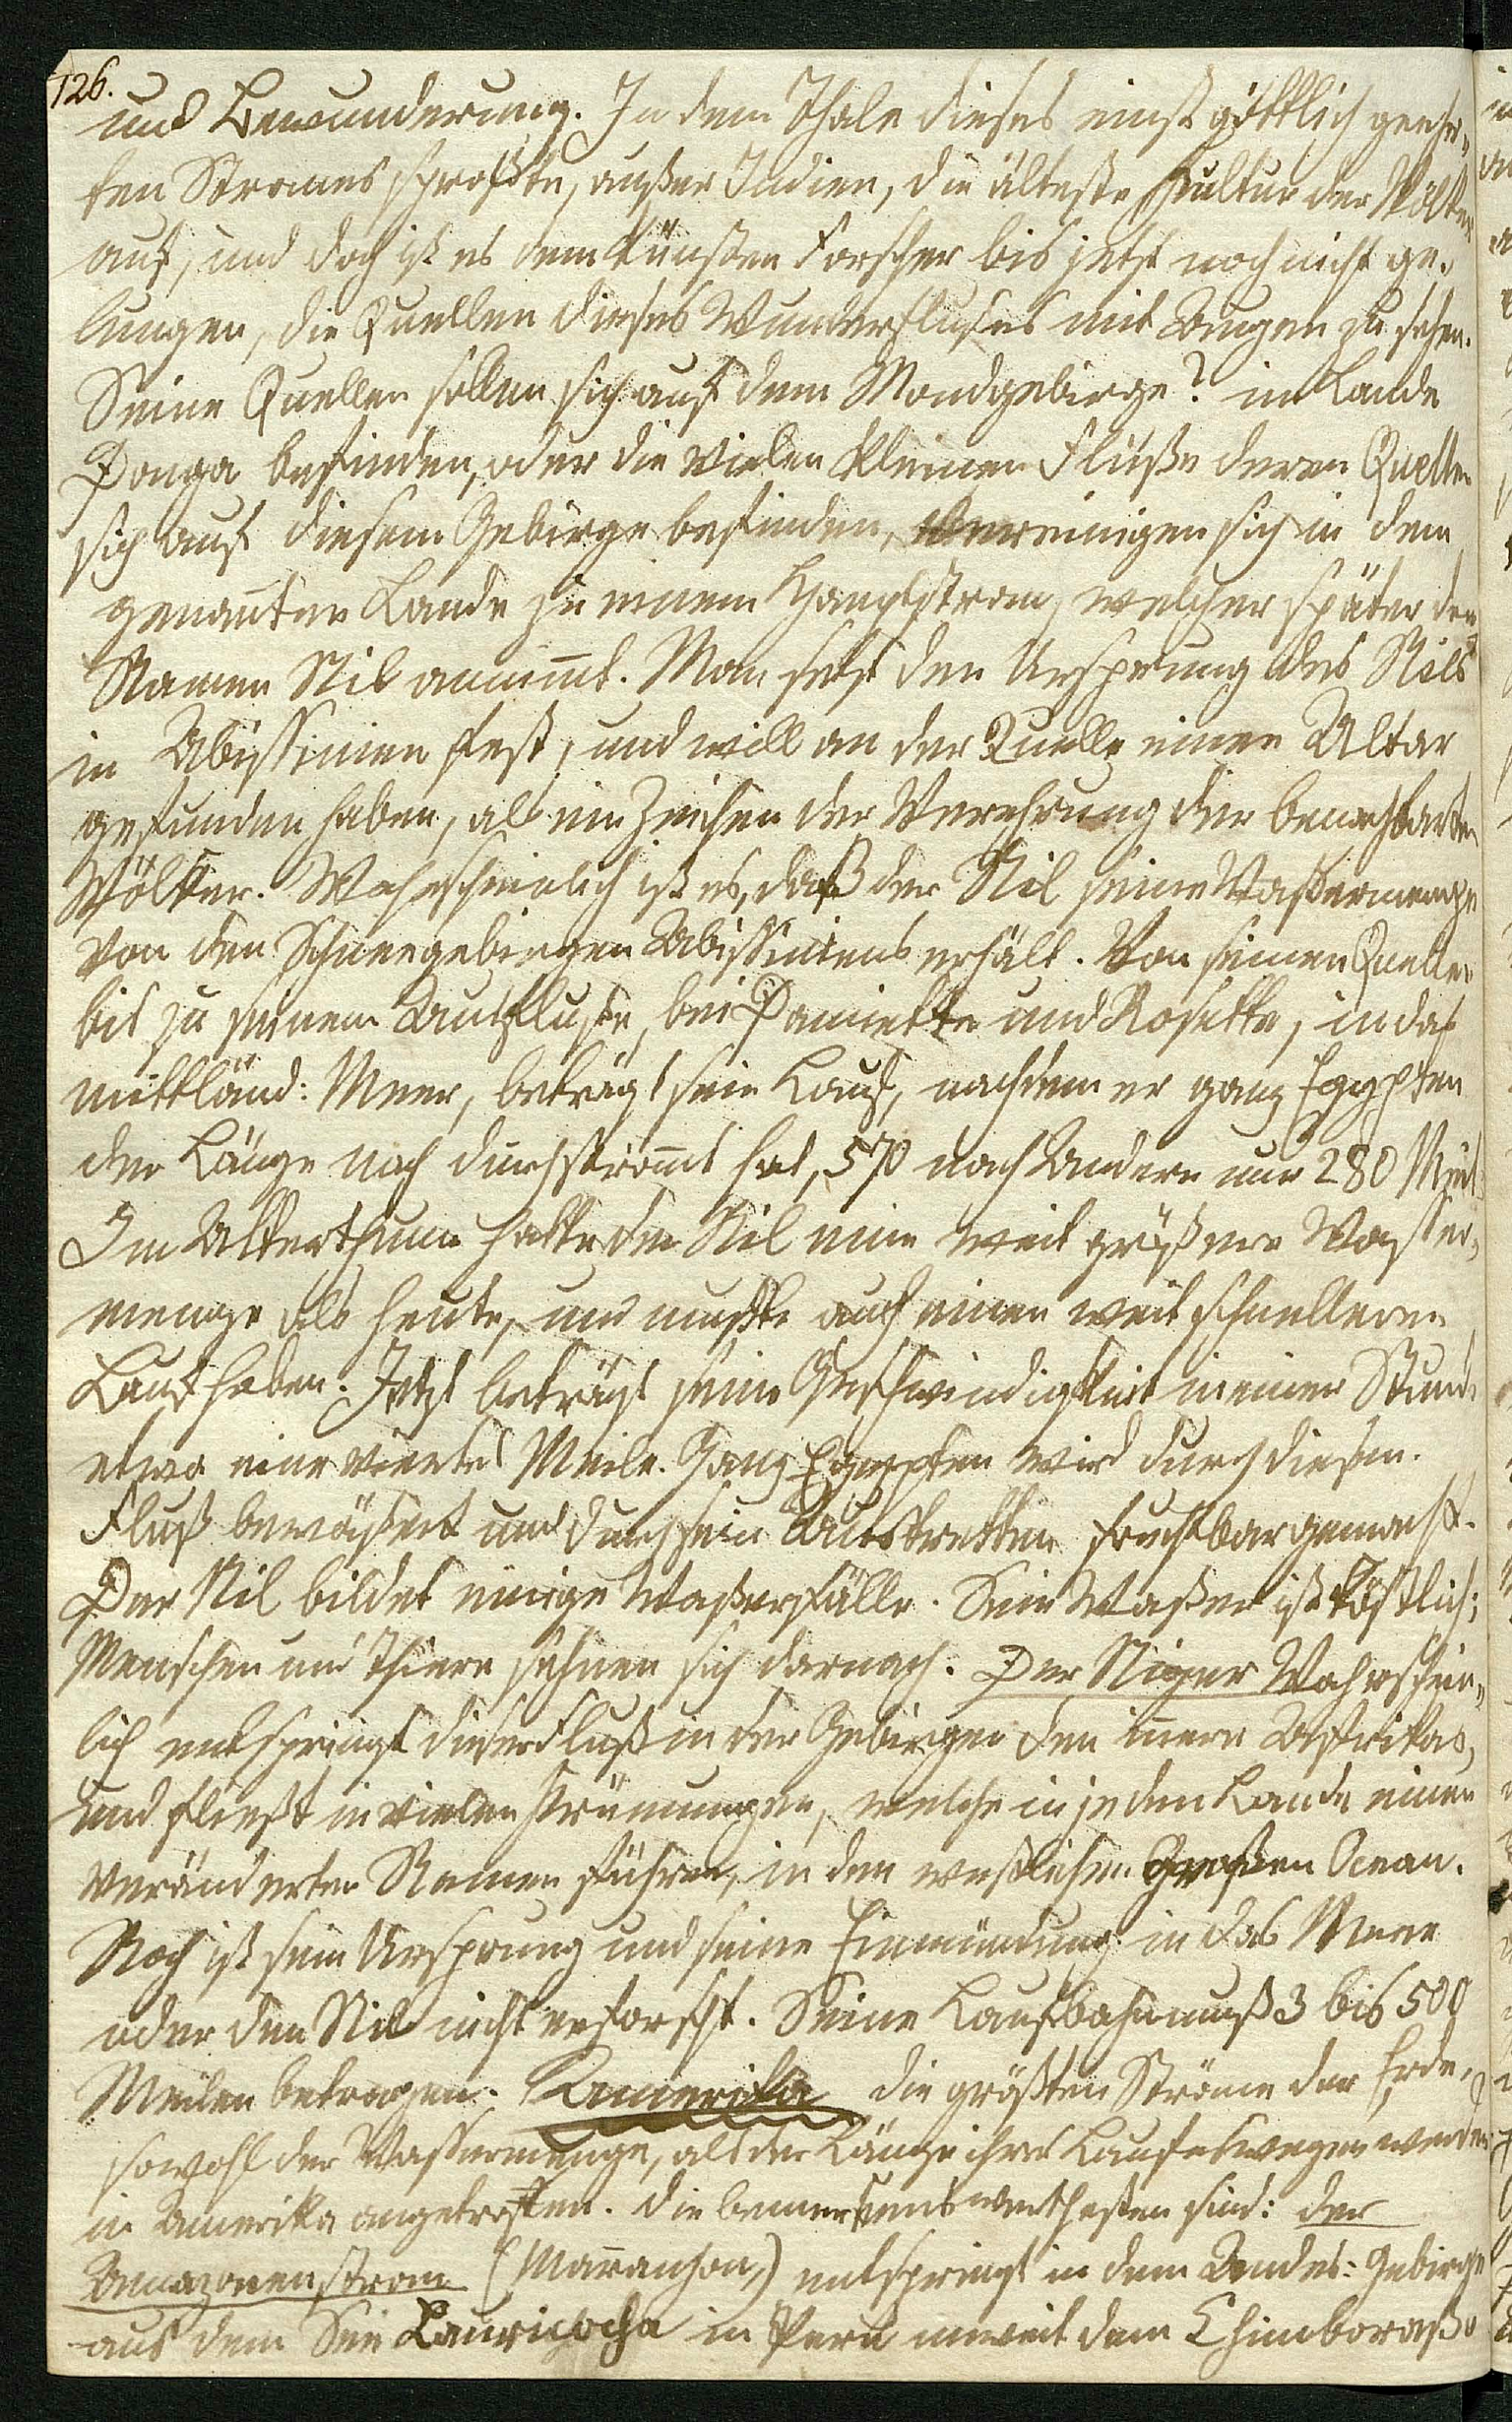 126.
und Bewunderung. In dem Thale dieses einst göttlich geehr-
ten Stromes sproßte, außer Indien, die älteste Kultur der Völker
auf, und doch ist es dem künsten Forscher bis jetzt noch nicht ge-
lungen, die Quellen dieses Wunderflußes mit Augen zu sehen.
Seine Quellen sollen sich auf dem Mondgebirge? im Lande
Donga befinden, oder die vielen kleinen Flüße deren Quellen
sich auf diesem Gebirge befinden, vereinigen sich in dem
genañten Lande zu einem Hauptstrom, welcher später den
Namen Nil animmt. Man setzt den Ursprung des Nils
in Abissinien fest, und will an der Quelle einen Altar
gefunden haben, als ein Zeichen der Verehrung der benachbarten
Völker. Wahrscheinlich ist es, daß der Nil seine Waßermenge
von den Schneegebirgen Abissiniens erhält. Von seinen Quellen
bis zu seinem Ausfluße, bei Damiette und Rosette, in das
mittländ: Meer, beträgt sein Lauf, nachdem er ganz Egypten
der Länge nach durchströmt hat, 570 nach Andern nur 280 Meil.
Im Alterthume hatte der Nil eine weit größere Wasser-
menge als heute, und mußte auch einen weit schnelleren
Lauf haben. Jetzt beträgt seine Geschwindigkeit in einer Stunde
etwa eine viertel Meile. Ganz Egypten wird durch diesen
Fluß bewäßert und durch sein Austretten fruchtbar gemacht.
Der Nil bildet einige Waßerfälle. Sein Waßer ist köstlich;
Menschen und Thiere sehnen sich darnach. Der Niger Wahrschein-
lich entspringt dieser Fluß in den Gebirgen des innern Afrikas,
und fließt in vielen Krümungen, welche in jedem Lande einen
veränderten Namen führen, in den westlichen Großen Ocean.
Noch ist sein Ursprung und seine Einmündung in das Meer
oder den Nil nicht erforscht. Seine Laufbahn muß 3 bis 500
Meilen betragen. Amerika die größten Ströme der Erde,
sowohl der Wassermenge, als der Länge ihres Laufes wegen werden
in Amerika angetroffen. die bemerkenswerthesten sind: der
Amazonenstrom (Marannon,) entspringt in dem Andes: Gebirge
aus dem See Lauricocha in Peru unweit dem Chimboraßo